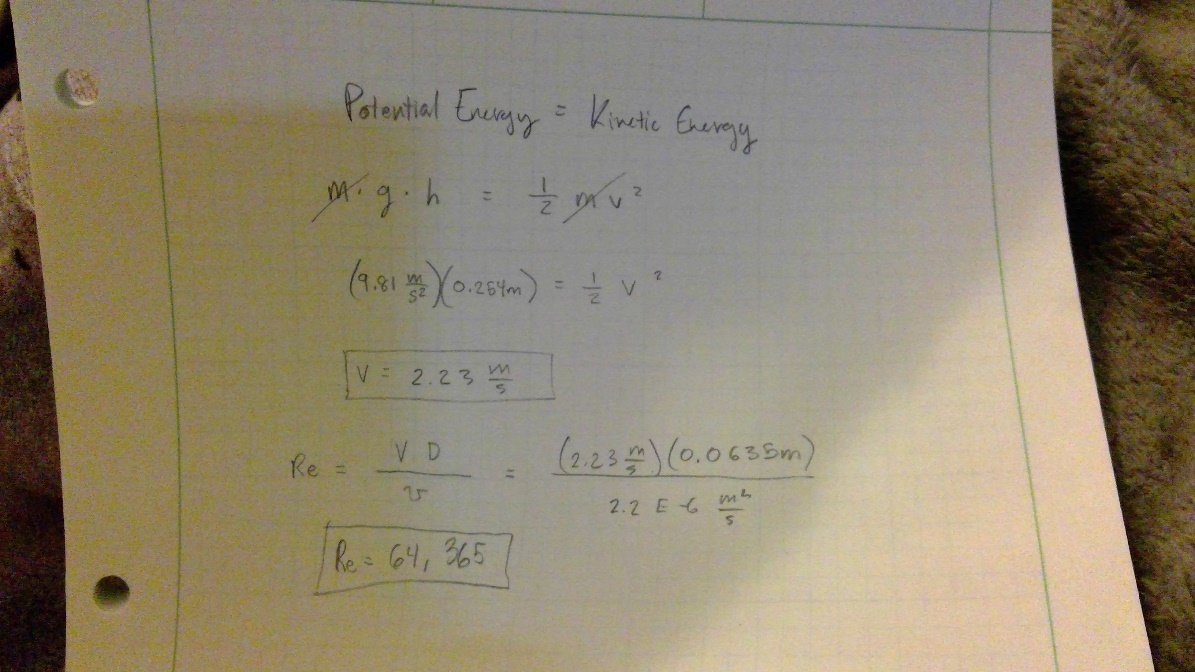 Potential Energy = Kinetic Energy
m · g · h = 1/2 m v²
(9.81 m/s²)(0.254m) = 1/2 v²
V = 2.23 m/s
Re = V D / ν = (2.23 m/s)(0.0635m) / 2.2 E-6 m²/s
Re = 64,365